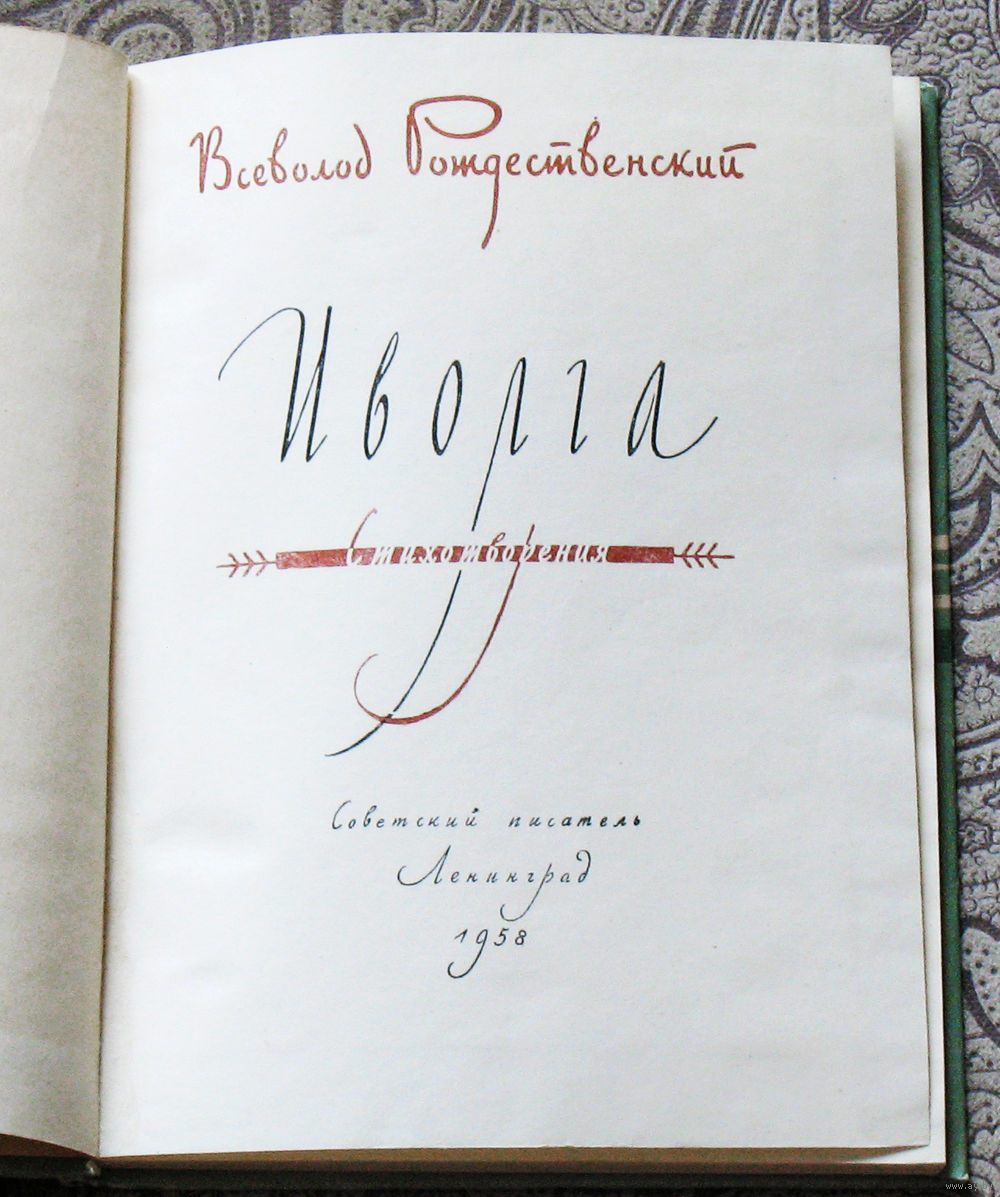 Всеволод Рождественский
Иволга
Стихотворения
Советский писатель
Ленинград
1958